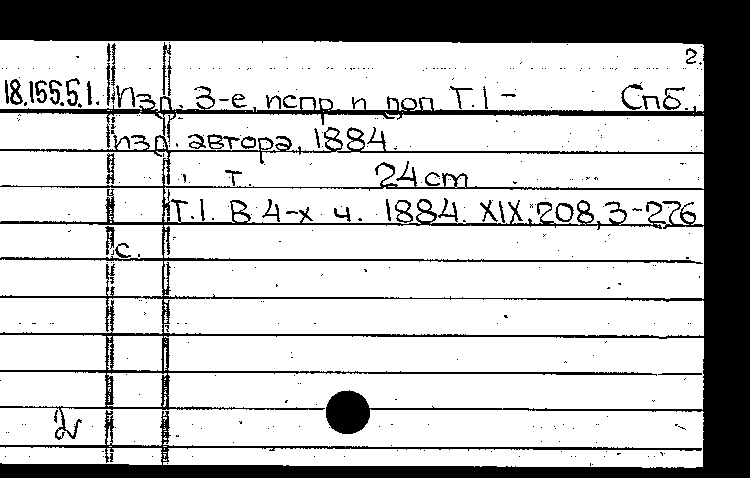 2.
18.155.5.1. Изд. 3-е, испр и доп. Т.1 - Спб.,
изд. автора, 1884.
т. 24 cm
Т.1. В 4-х ч. 1884. XIX, 208, 3-276
с.